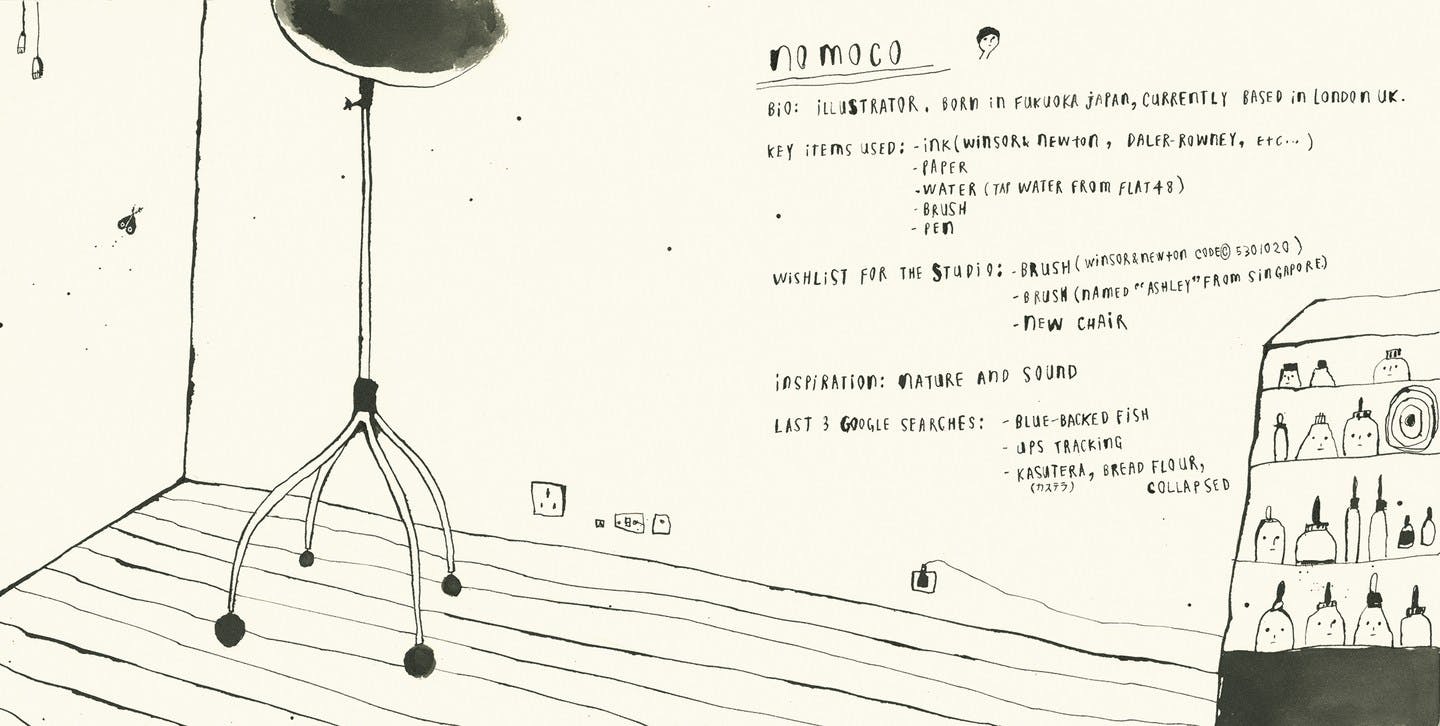 nomoco
BiO: iLLUSTRATOR. BORN in FUKUOKA JAPAN, CURRENTLY BASED in LONDON UK.
KEY iTEMS USED: - iNK (WiNSOR & NEWtON, DALER-ROWNEY, EtC... )
- PAPER
- WATER (TAP WATER FROM FLAT 48)
- BRUSH
- PEN
WiSHLiST FOR THE STUDiO: - BRUSH (WiNSOR & NEWtON CODE© 5301020)
- BRUSH (NAMED "ASHLEY" FROM SiNGAPORE)
- NEW CHAiR
iNSPiRATiON: NATURE AND SOUND
LAST 3 GOOGLE SEARCHES: - BLUE-BACKED FiSH
- UPS TRACKiNG
- KASUTERA, BREAD FLOUR,
(カステラ) COLLAPSED